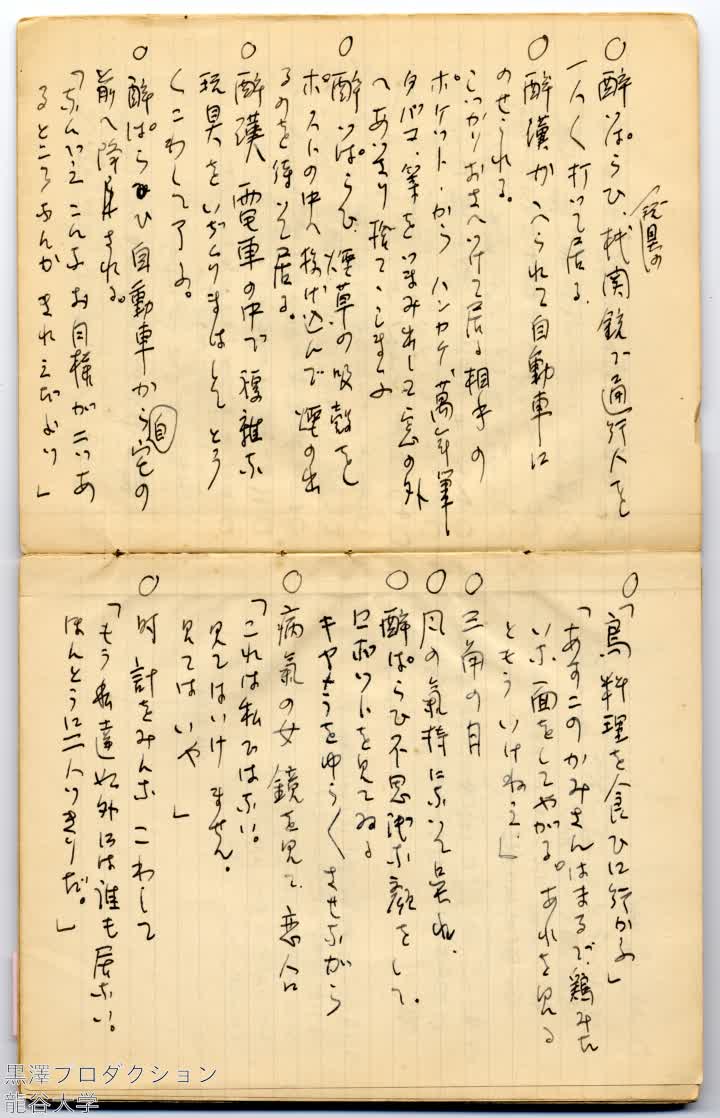 ○酔いぱらひ、機関銃で通行人を
玩具の
一人〱打って居る、
○酔漢がヘられて自動車に
のせられる。
しっかりおさへつけて居る相手の
ポケットからハンカケ、萬年筆、
タバコ、等をつまみ出して窓の外
へあっさり捨てゝしまふ
○酔いぱらひ、煙草の吸殻を
ポストの中へ投げ込んで煙の出
るのを待って居る。
○酔漢、電車の中で複雑な
玩具をいぢくりまはしとう〱
こわして了ふ。
○酔ぱらひ自動車から自宅の
前へ降される。
「なんでえこんなお月様が二つあ
るところなんかきれえだよッ」
○「鳥料理を食ひに行かふ」
「あすこのかみさんはまるで鶏みた
いな面をしてやがる。あれを見る
ともういけねえ」
○三角の月
○月の気持になって呉れ、
○酔ぱらひ不思議な顔をして、
ロボットを見てゐる
○病気の女鏡を見て、恋人に
「これは私ではない。
見てはいけません。
見てはいや」
○時計をみんなこわして
「もう私達以外には誰も居ない。
ほんとうに二人っきりだ。」
黒澤プロダクション
龍谷大学